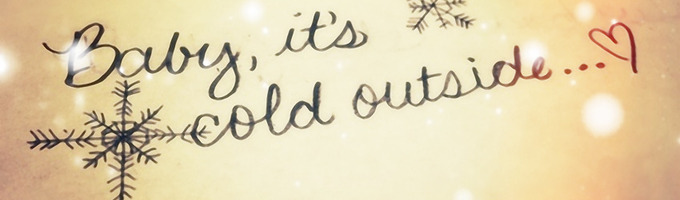 Baby, it's
cold outside...♡